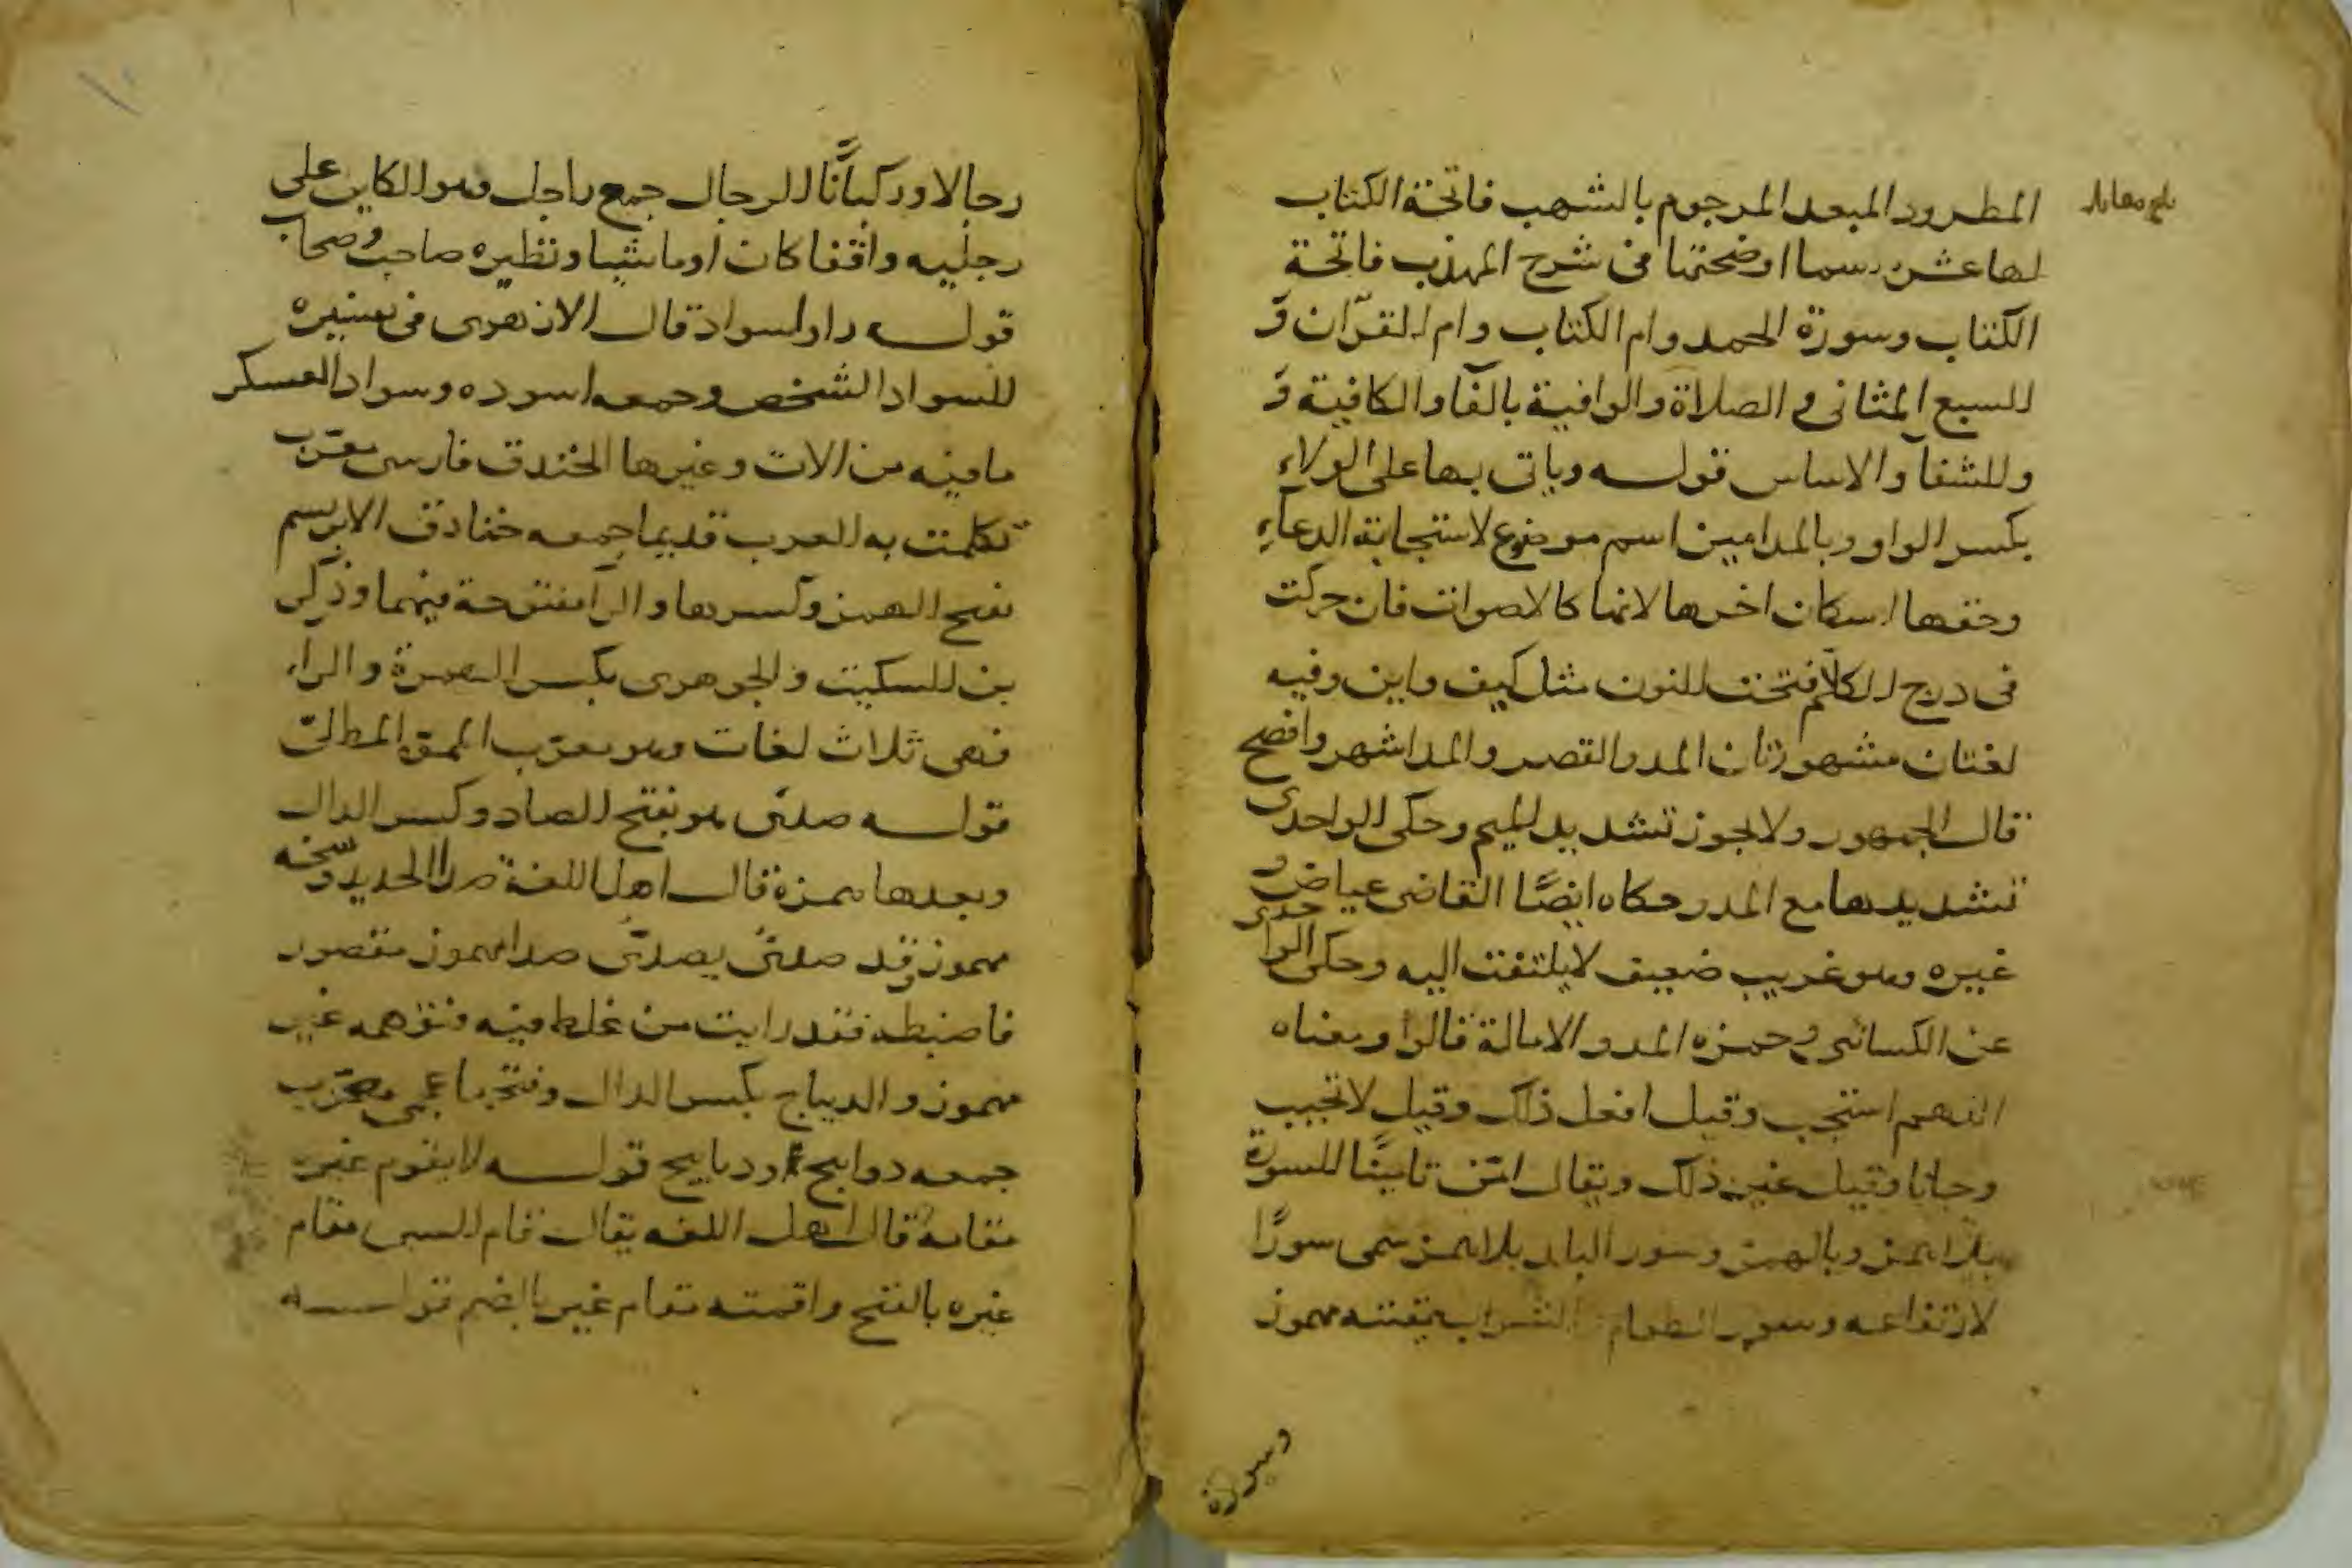 المطرود المبعد المرجوم بالشهب فاتحة الكتاب
لها عشرة اسما اوضحتها فى شرح المهذب فاتحة
الكتاب وسورة الحمد وام الكتاب وام القرآن و
السبع المثانى و الصلاة والوافية بالفآ والكافية و
والشفآ والاساس قوله وياتى بها على الولاء
بكسر الواو وبالمد امين اسم موضوع لاستجابة الدعآء
وحقها اسكان اخرها لانها كالاصوات فان حركت
فى درج الكلام فتحت النون مثل كيف واين وفيه
لغتان مشهورتان المد والقصر والمد اشهر وافصح
قال الجمهور ولا يجوز تشديد الميم وحكى الواحدى
تشديدها مع المد حكاه ايضًا القاضى عياض و
غيره وهو غريب ضعيف لا يلتفت اليه وحكى الواحدى
عن الكسائى و حمزه المد والامالة قالوا ومعناه
اللهم استجب وقيل افعل ذلك وقيل لا تخيب
رجانا وقيل غير ذلك ويقال امّن تامينًا السورة
بلا همز وبالهمز وسور البلد بلا همز سمى سورًا
لارتفاعه وسور الطعام الشراب بقيته مهموز
وسورة
رجالا وركبانًا الرجال جمع راجل وهو الكاين على
رجليه واقفا كان او ماشيا ونظيره صاحب وصحاب
قوله راو اسواد قال الازهرى فى تفسيره
السواد الشخص وجمعه اسوده وسواد العسكر
ما فيه من الات وغيرها الخندق فارسى معرّب
تكلمت به العرب قديما جمعه خنادق الابريسم
بفتح الهمز وكسرها والرآ مفتوحة فيهما وذكر
بن السكيت والجوهرى بكسر الهمزة والراء
فهى ثلاث لغات وهو معرّب المموه المطلىّ
قوله صدئ هو بفتح الصاد وكسر الدال
وبعدها همزة قال اهل اللغة صدا الحديد وسخه
مهموز وقد صدئ يصدئ صدا مهموز مقصور
فاضبطه فقد رايت من غلط فيه فتوهمه غير
مهموز والديباج بكسر الدال وفتحها عجمى معرّب
جمعه دوابيج ودبابيج قوله لا يقوم غيره
مقامه قال اهل اللغه يقال قام الشى مقام
غيره بالفتح واقمته مقام غيره بالضم قوله